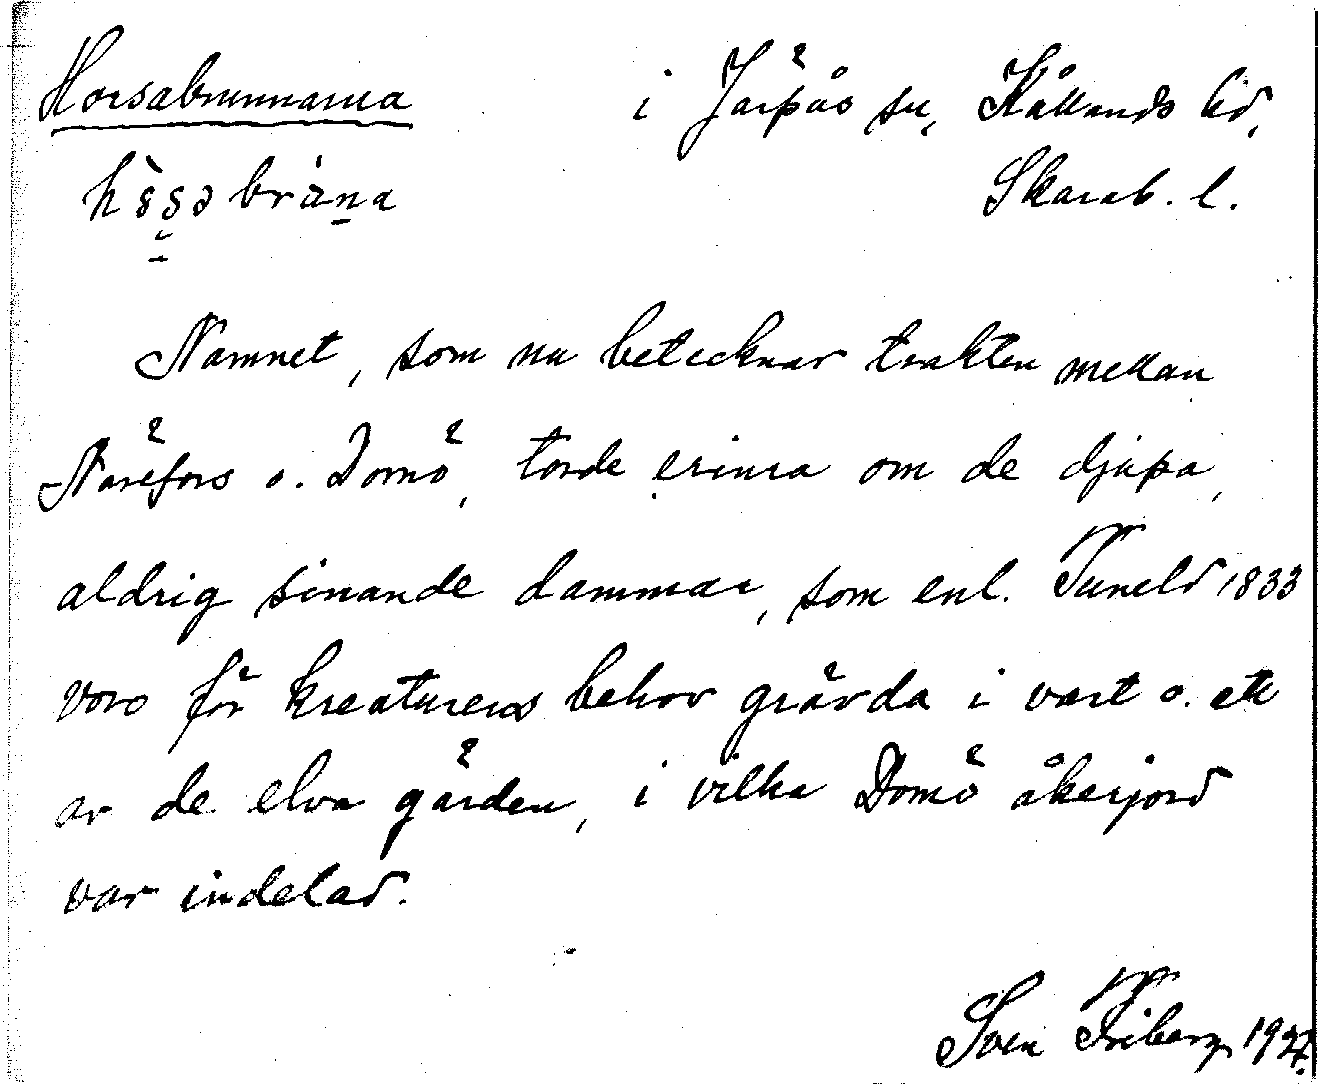 Horsabrunnarna i Järpås sn, Kållands hd,
Skarab. l.
Namnet, som nu betecknar trakten mellan
Närefors o. Domö, torde erinra om de djupa,
aldrig sinande dammar, som enl. Tuneld 1833
voro för kreaturens behov grävda i vart o. ett
av de elva gärden, i vilka Domö åkerjord
var indelad.
Sven Friberg